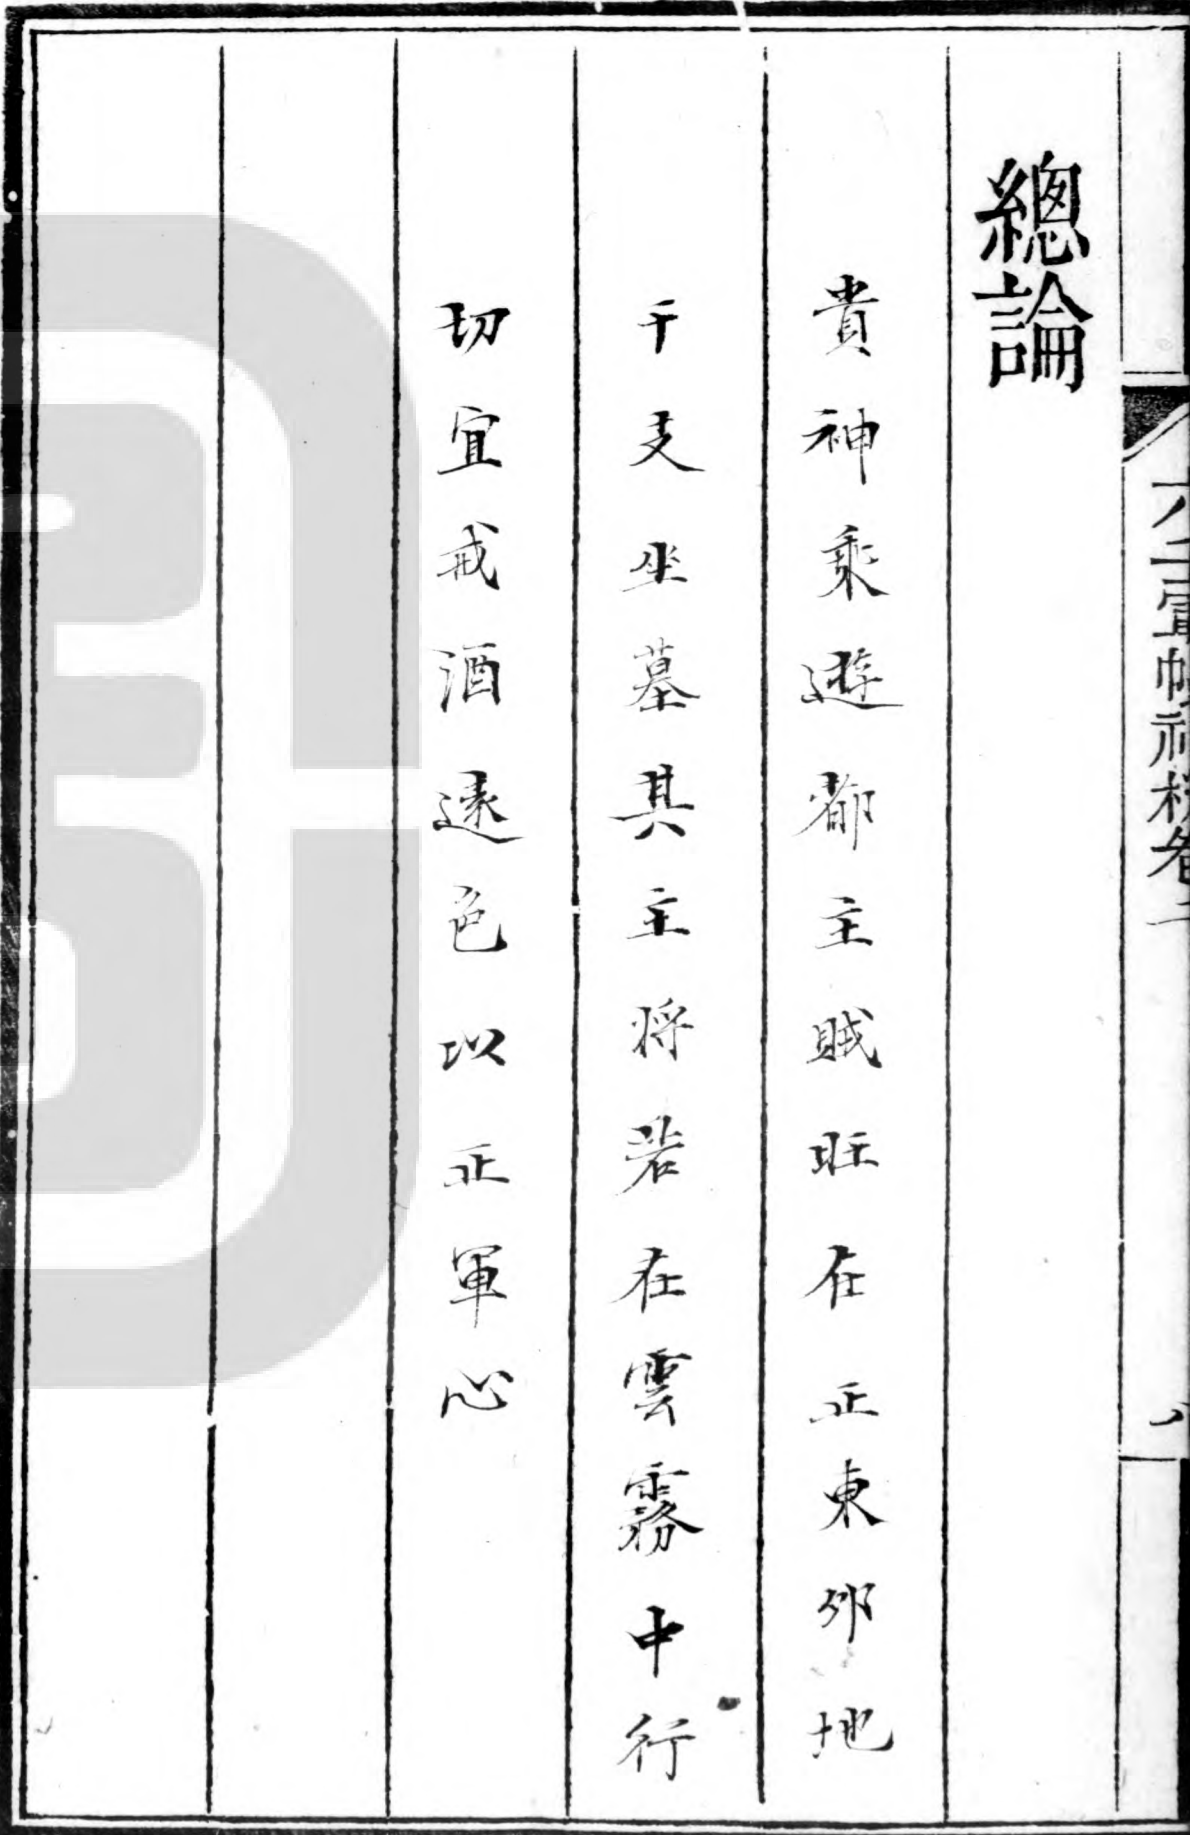 六壬軍帳神機卷二
總論
貴神乘遊都主賊旺在正東卯地
干支坐墓其主將若在雲霧中行
切宜戒酒遠色以正軍心